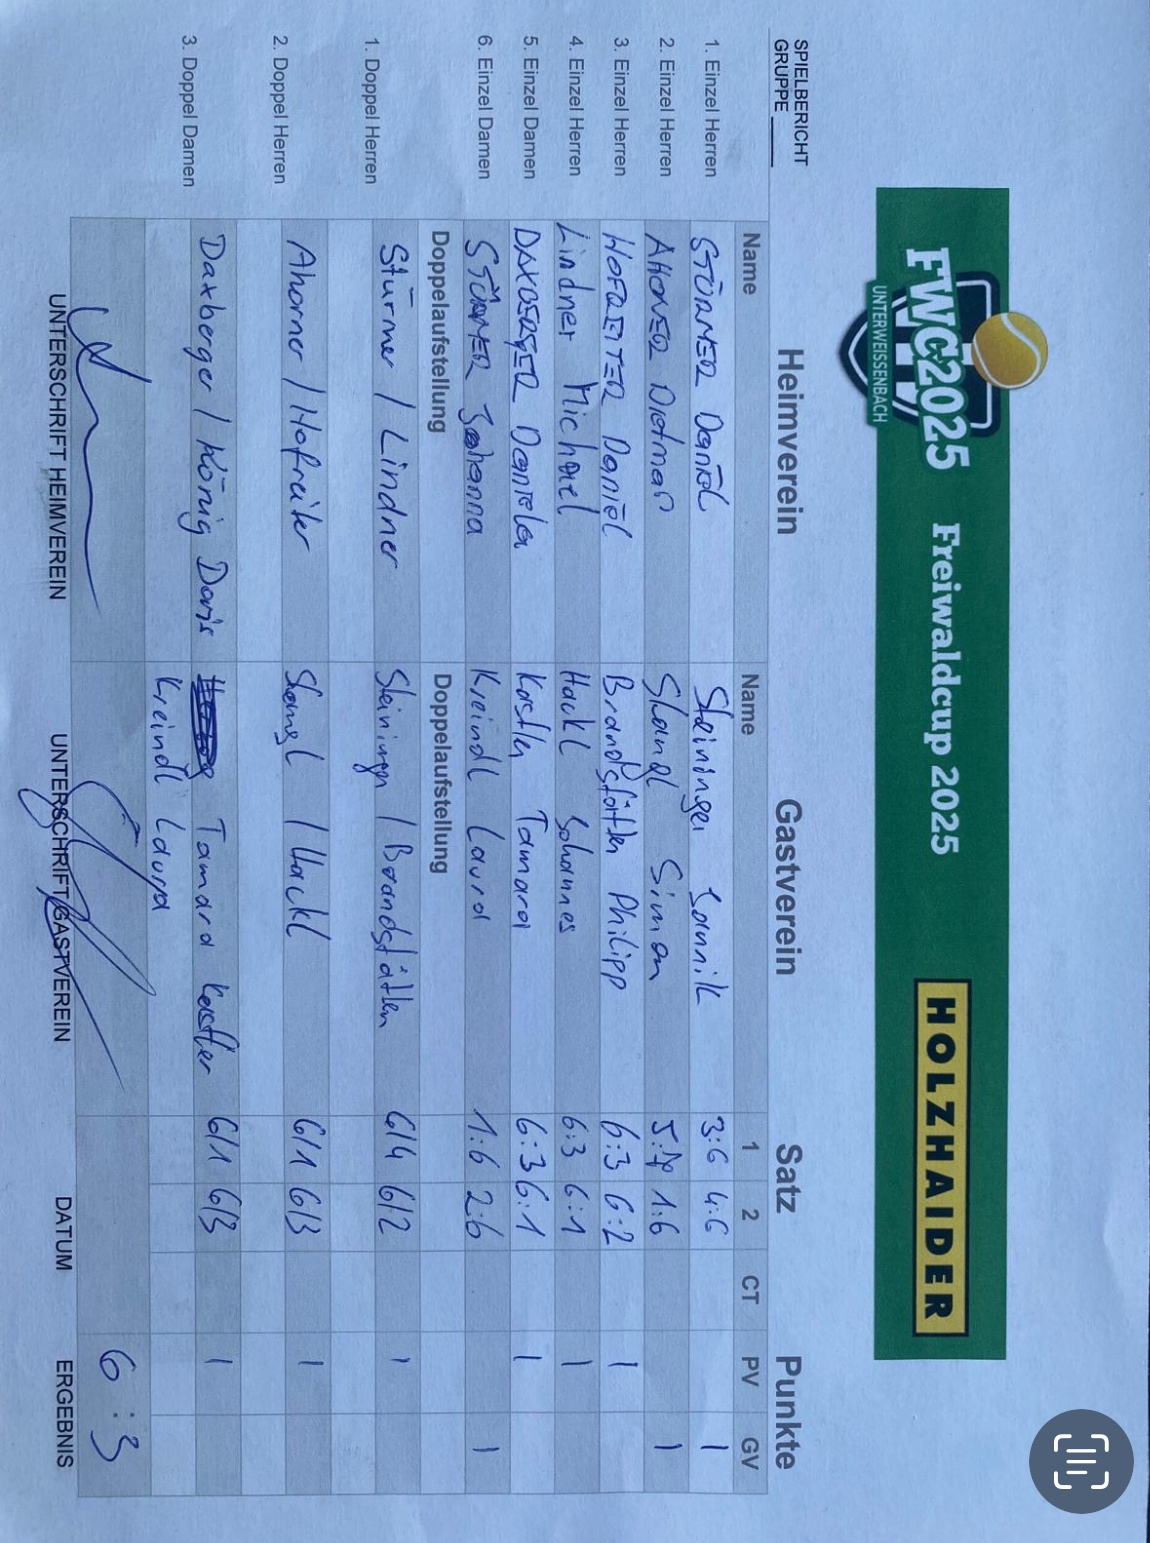 FWC2025 Freiwaldcup 2025 HOLZHAIDER
UNTERWEISSENBACH
SPIELBERICHT
GRUPPE ____
Heimverein Gastverein Satz Punkte
Name Name 1 2 CT PV GV
1. Einzel Herren STÜRMER Daniel Steininger Jannik 3:6 4:6 1
2. Einzel Herren AHORNER Dietmar Stangl Simon 5:7 1:6 1
3. Einzel Herren HOFREITER Daniel Brandstätter Philipp 6:3 6:2 1
4. Einzel Herren Lindner Michael Hackl Johannes 6:3 6:1 1
5. Einzel Damen DAXBERGER Daniela Kastler Tamara 6:3 6:1 1
6. Einzel Damen STÜRMER Johanna Kreindl Laura 1:6 2:6 1
Doppelaufstellung Doppelaufstellung
1. Doppel Herren Stürmer / Lindner Steininger / Brandstätter 6/4 6/2 1
2. Doppel Herren Ahorner / Hofreiter Stangl / Hackl 6/1 6/3 1
3. Doppel Damen Daxberger / König Doris Tamara Kastler 6/1 6/3 1
Kreindl Laura
6:3
UNTERSCHRIFT HEIMVEREIN UNTERSCHRIFT GASTVEREIN DATUM ERGEBNIS